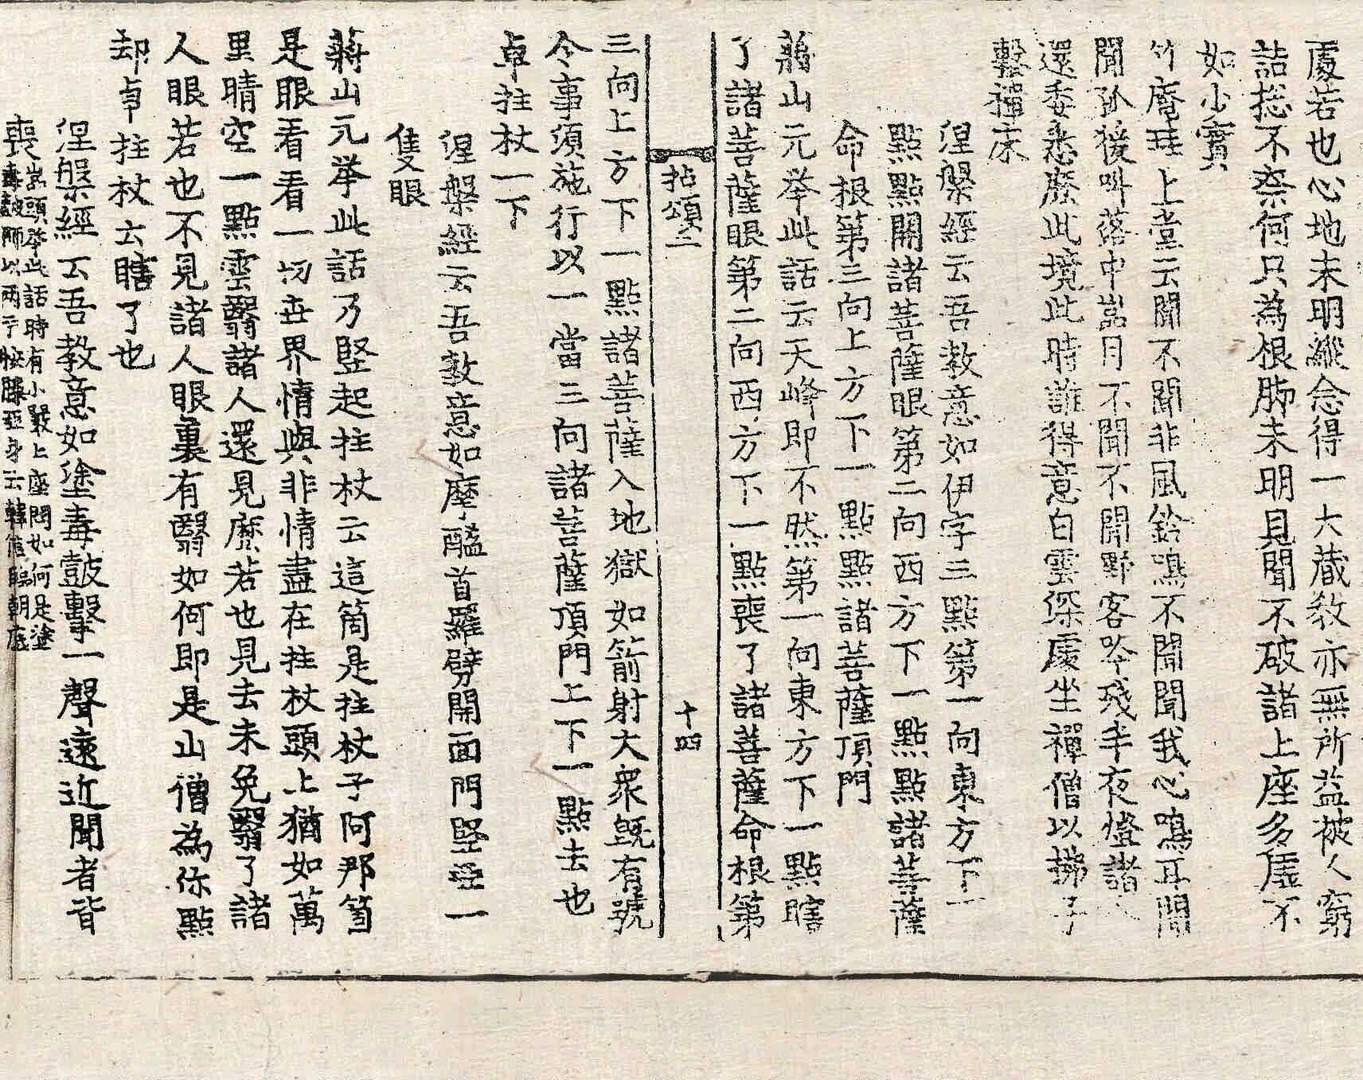 處若也心地未明縱念得一大藏敎亦無所益被人窮
詰捴不柰何只為根脚未明見聞不破諸上座多虛不
如少實
竹庵珪上堂云聞不聞非風鈴鳴不聞聞我心鳴耳聞
聞孤猿叫落中嵓月不聞不聞野客吟殘半夜燈諸人
還委悉麽此境此時誰得意白雲深處坐禪僧以拂子
擊禪床
涅槃經云吾敎意如伊字三點第一向東方下一
點點開諸菩薩眼第二向西方下一點點諸菩薩
命根第三向上方下一點點諸菩薩頂門
蔣山元举此話云天峰即不然第一向東方下一點瞎
了諸菩薩眼第二向西方下一點喪了諸菩薩命根第
拈頌二
十四
三向上方下一點諸菩薩入地獄如箭射大衆旣有號
令事須施行以一當三向諸菩薩頂門上下一點去也
卓拄杖一下
涅槃經云吾敎意如摩醯首羅劈開面門竪亞一
隻眼
蔣山元举此話乃竪起拄杖云這箇是拄杖子阿那箇
是眼看看一切世界情與非情盡在拄杖頭上猶如萬
里晴空一點雲翳諸人還見麽若也見去未免翳了諸
人眼若也不見諸人眼裏有翳如何即是山僧為你點
却卓拄杖云瞎了也
涅槃經云吾敎意如塗毒皷擊一聲遠近聞者皆
喪嵓頭举此話時有小嚴上座問如何是塗
毒皷師以兩手按膝亞身云韓信臨朝底